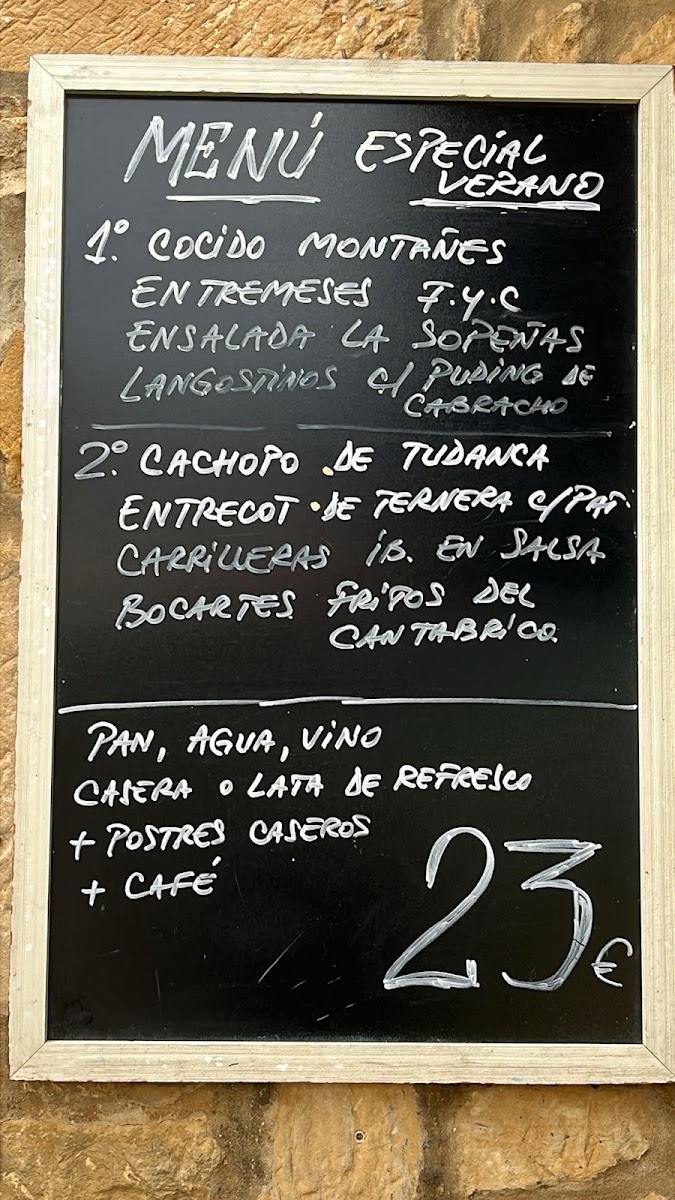 MENÚ ESPECIAL
VERANO
1º COCIDO MONTAÑES
ENTREMESES F.Y.C
ENSALADA LA SOPEÑAS
LANGOSTINOS C/ PUDING DE
CABRACHO
2º CACHOPO DE TUDANCA
ENTRECOT DE TERNERA C/PAT.
CARRILLERAS IB. EN SALSA
BOCARTES FRIPOS DEL
CANTABRICO.
PAN, AGUA, VINO
CASERA O LATA DE REFRESCO
+ POSTRES CASEROS
+ CAFÉ
23€